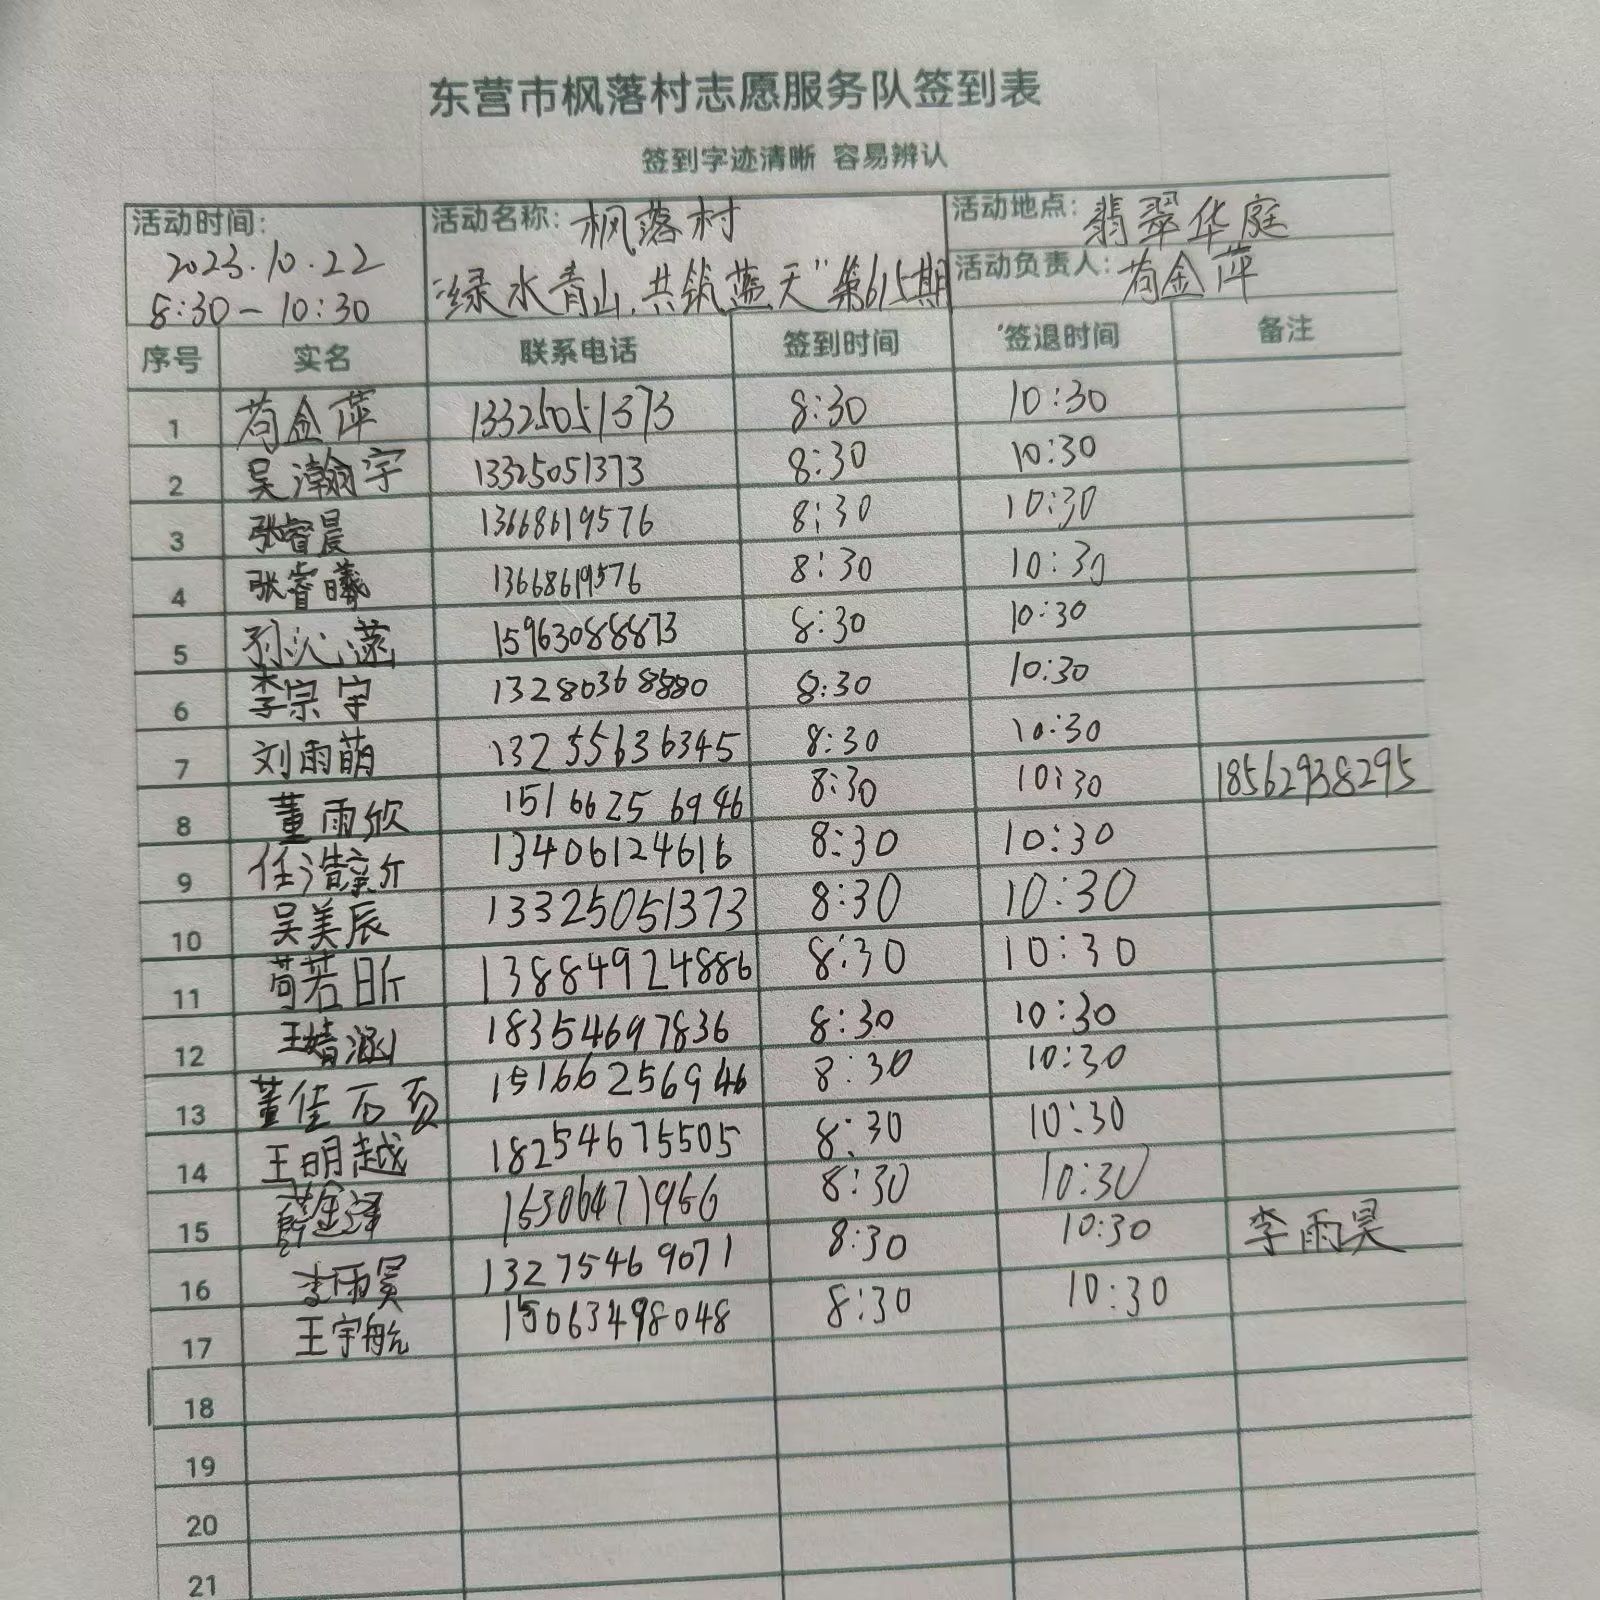 东营市枫落村志愿服务队签到表
签到字迹清晰 容易辨认
活动时间: 2023.10.22 8:30-10:30
活动名称: 枫落村 "绿水青山,共筑蓝天"第615期
活动地点: 翡翠华庭
活动负责人: 苟金萍
序号 实名 联系电话 签到时间 签退时间 备注
1 苟金萍 13325051373 8:30 10:30
2 吴瀚宇 13325051373 8:30 10:30
3 张睿晨 13668619576 8:30 10:30
4 张睿曦 13668619576 8:30 10:30
5 孙沁滢 15963088873 8:30 10:30
6 李宗宇 8:30 10:30
7 刘雨萌 13255636345 8:30 10:30
8 董雨欣 15166256946 8:30 10:30 18562938295
9 任浩 13406124616 8:30 10:30
10 吴美辰 13325051373 8:30 10:30
11 苟若昕 13884924886 8:30 10:30
12 王婧涵 18354697836 8:30 10:30
13 董佳硕 15166256946 8:30 10:30
14 王明越 18254675505 8:30 10:30
15 薛金泽 15306471956 8:30 10:30
16 李雨昊 13275469071 8:30 10:30 李雨昊
17 王宇航 15063498048 8:30 10:30
18
19
20
21